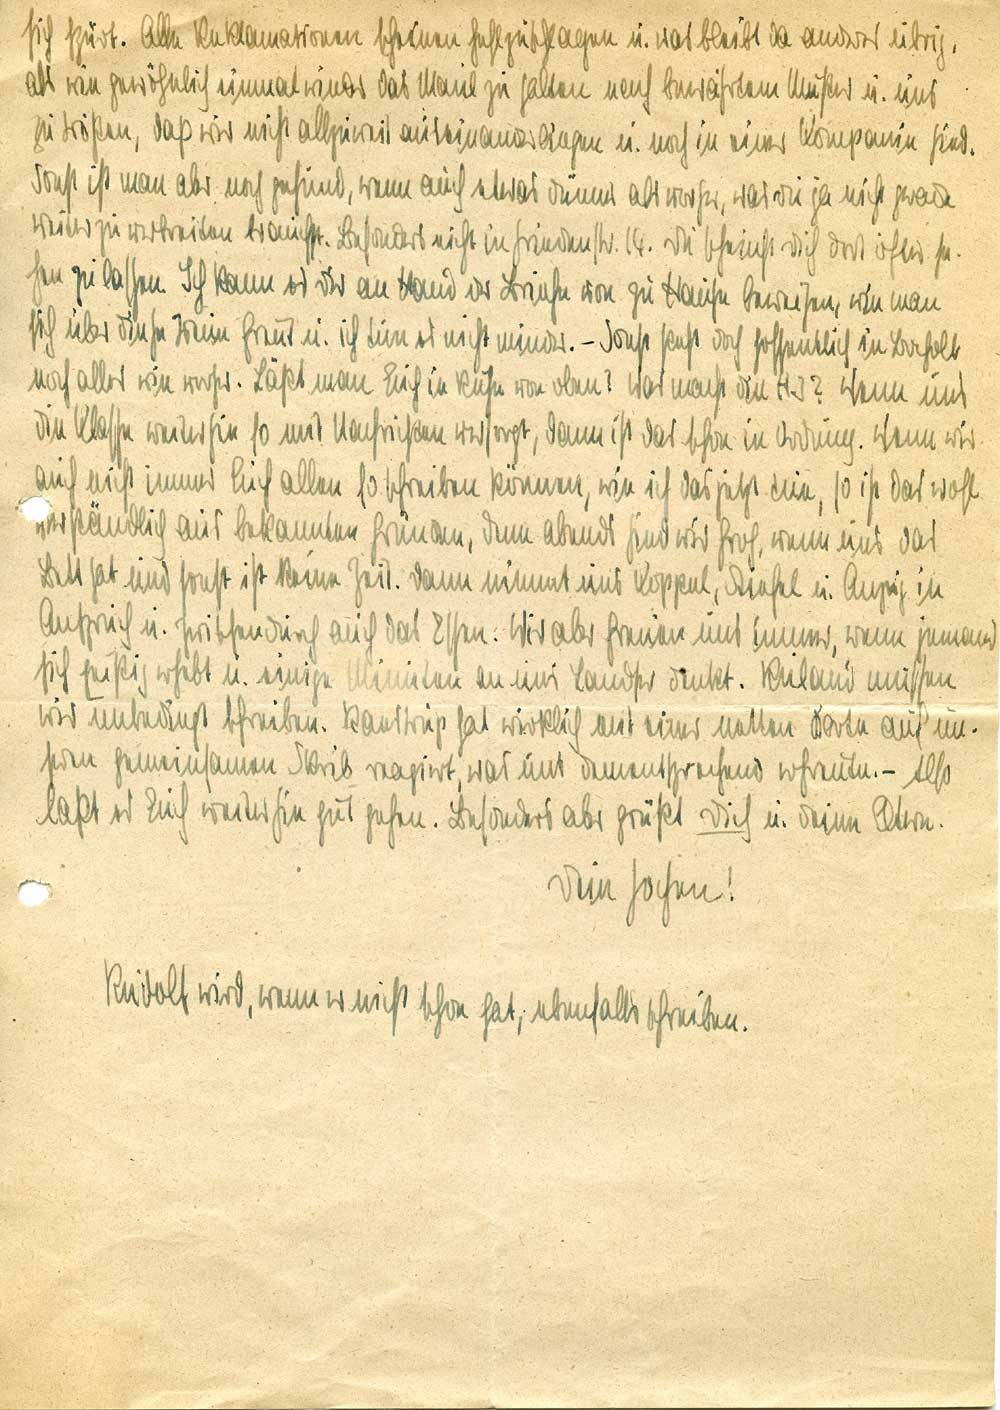 sich spürt. Alle Reklamationen scheinen fehlzuschlagen u. was bleibt da anders übrig,
als wie gewöhnlich einmal wieder das Maul zu halten nach bewährtem Muster u. uns
zu trösten, daß wir nicht allzuweit auseinander liegen u. noch in einer Kompanie sind.
Sonst ist man aber noch gesund, wenn auch etwas dünner als vorher, was Du ja nicht gerade
weiter zu verbreiten brauchst. Besonders nicht in Friedenstr. 14. Du scheinst Dich dort öfter se-
hen zu lassen. Ich kann es Dir an Hand der Briefe von zu Hause beweisen, wie man
sich über diese freut u. ich tue es nicht minder. – Sonst geht doch hoffentlich in Bocholt
noch alles wie vorher. Läßt man Euch in Ruhe von oben? Was macht die HJ? Wenn uns
die Klasse weiterhin so mit Nachrichten versorgt, dann ist das schon in Ordnung. Wenn wir
auch nicht immer Euch allen so schreiben können, wie ich das jetzt tue, so ist das wohl
verständlich aus bekannten Gründen, denn abends sind wir froh, wenn uns das
Bett hat und sonst ist keine Zeit. Dann nimmt uns Koppel, Stiefel u. Anzug in
Anspruch u. zwischendurch auch das Essen. Wir aber freuen uns immer, wenn jemand
sich geistig erhebt u. einige Minuten an uns Landser denkt. Ruland müssen
wir unbedingt schreiben. hat wirklich mit einer netten Karte auf un-
seren gemeinsamen Skrib reagiert, was uns dementsprechend erfreute. – Also
laßt es Euch weiterhin gut gehen. Besonders aber grüßt Dich u. Deine Eltern.
Dein Jochen!
Rudolf wird, wenn er nicht schon hat, ebenfalls schreiben.